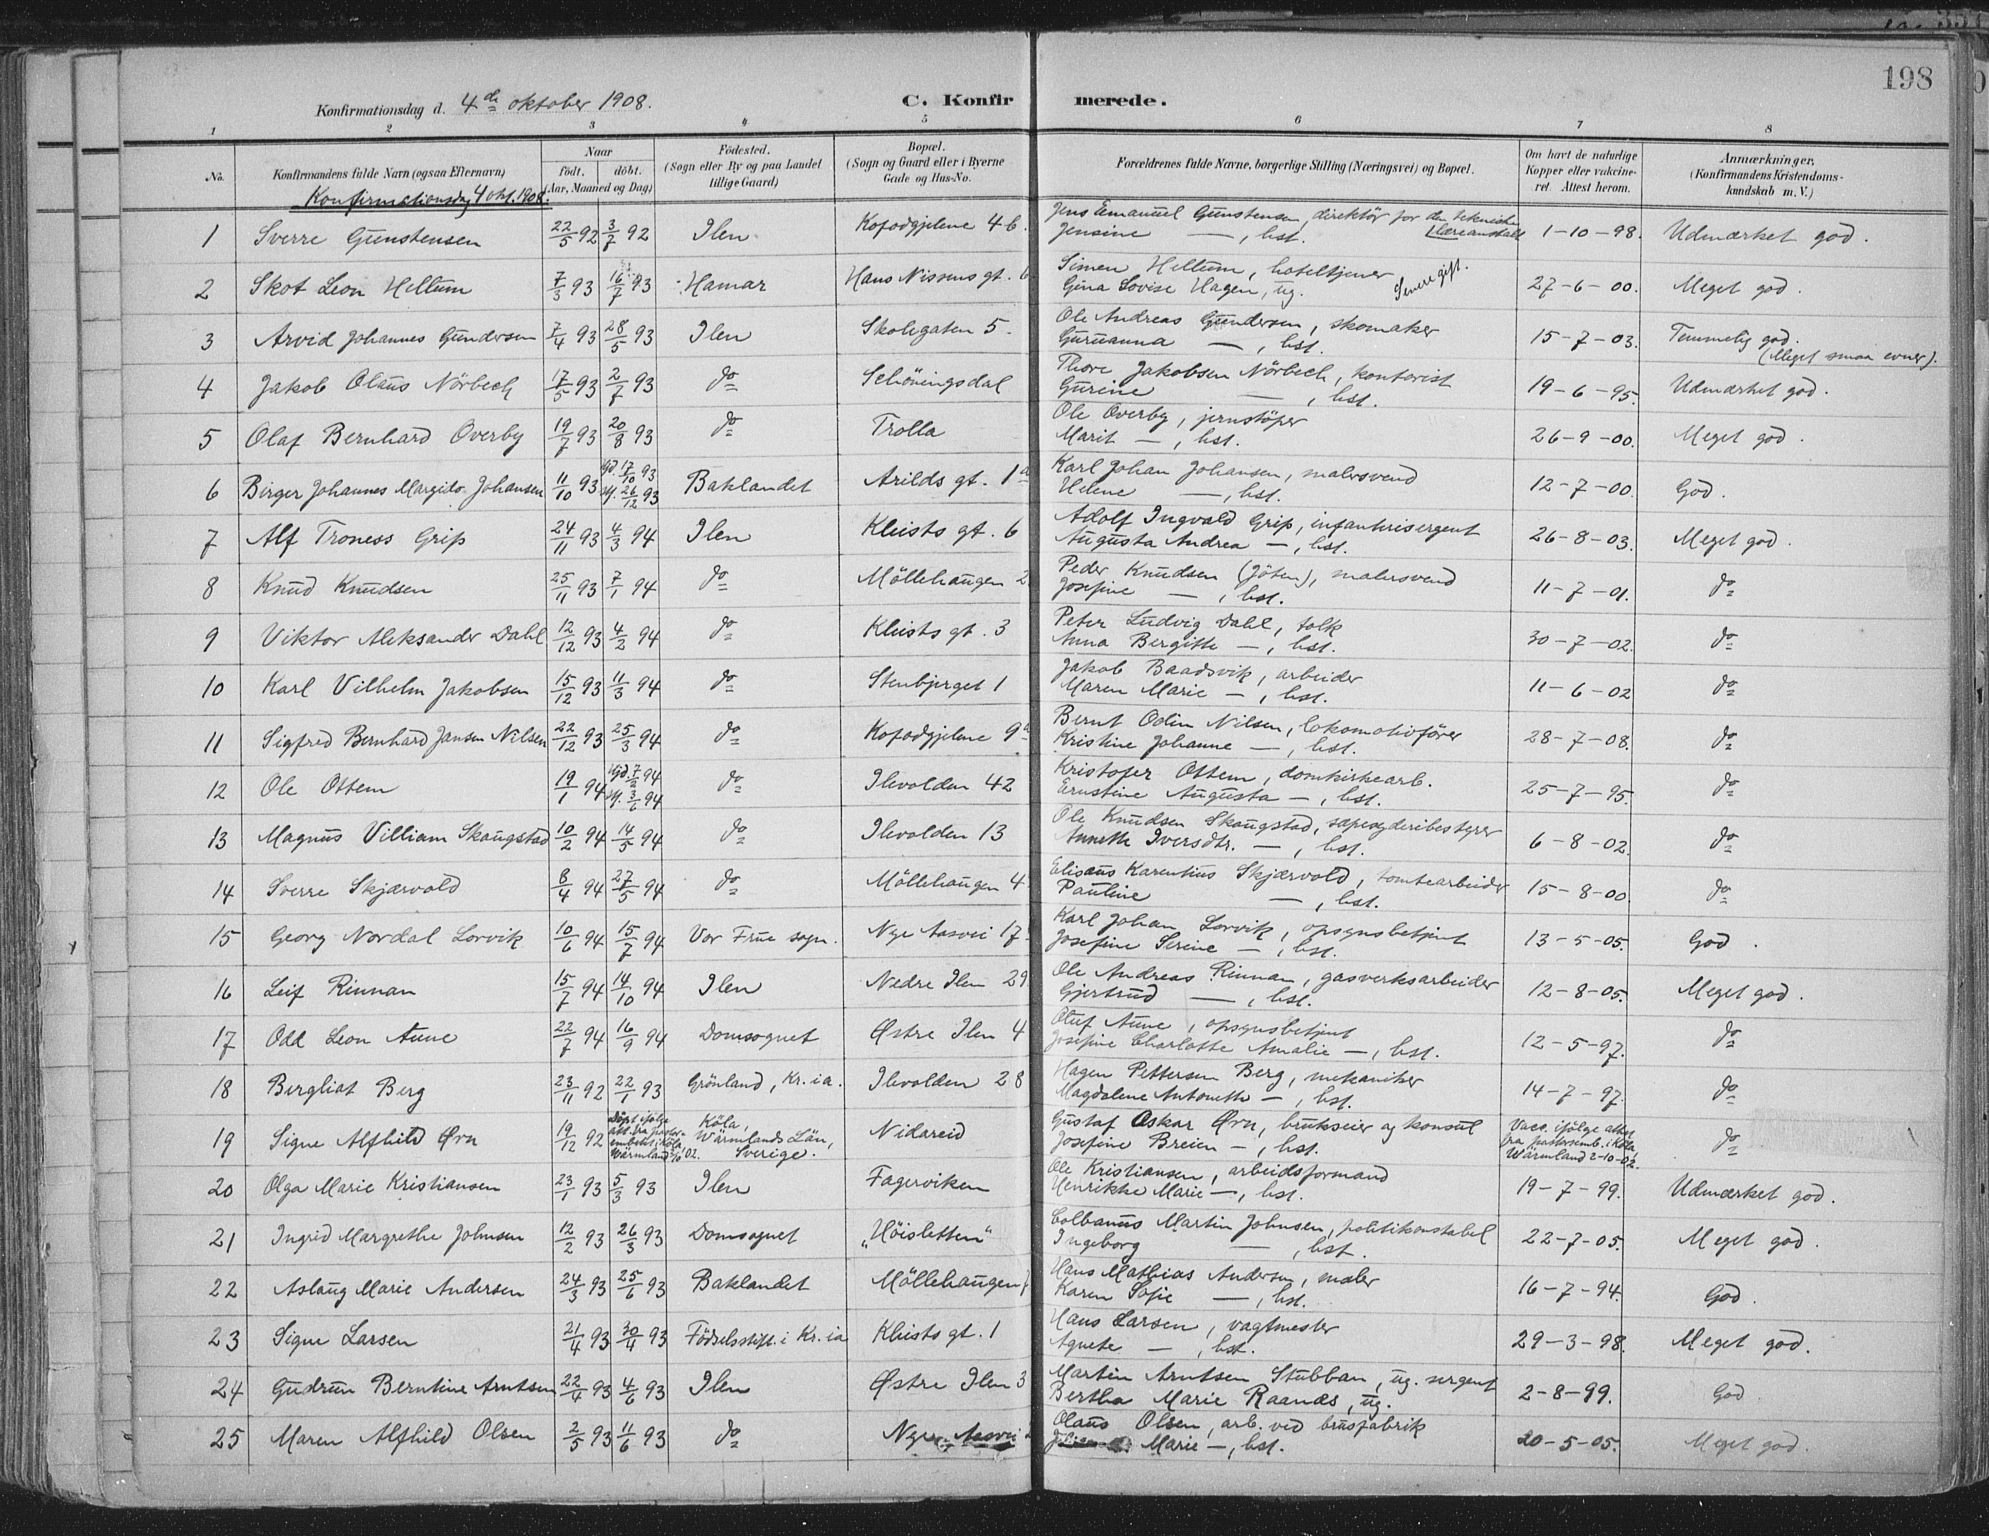 198
Konfirmationsdag d. 4de oktober 1908. C. Konfirmerede.
1 2 3 4 5 6 7 8
No. Konfirmandens fulde Navn (ogsaa Efternavn) Naar født. døbt. (Aar, Maaned og Dag) Fødested. (Sogn eller By og paa Landet tillige Gaard) Bopæl. (Sogn og Gaard eller i Byerne Gade og Hus-No. Forældrenes fulde Navne, borgerlige Stilling (Næringsvei) og Bopæl. Om havt de naturlige Kopper eller vaccineret. Attest herom. Anmærkninger, (Konfirmandens Kristendomskundskab m. V.)
Konfirmationsdag 4 okt. 1908.
1 Sverre Gunstensen 22/5 92 3/7 92 Ilen Kofodgjelene 46. Jens Emanuel Gunstensen, direktör for den tekniske læreanstalt 1-10-98. Udmærket god.
Jensine —, hst.
2 Skot Leon Hellum 7/3 93 16/7 93 Hamar Hans Nissens gt. 6 Simen Hellum, hoteltjener 27-6-00. Meget god.
Gina Lovise Hagen, ug. Senere gift.
3 Arvid Johannes Gundersen 7/4 93 28/5 93 Ilen Skolegaten 5. Ole Andreas Gundersen, skomaker 15-7-03. Temmelig god.
Guruanna —, hst. (Meget smaa evner).
4 Jakob Olaus Nörbech 17/5 93 2/7 93 do Schöningsdal Thore Jakobsen Nörbech, kontorist 19-6-95. Udmærket god.
Gurine —, hst.
5 Olaf Bernhard Overby 19/7 93 20/8 93 do Trolla Ole Overby, jernstöper 26-9-00. Meget god.
Marit —, hst.
6 Birger Johannes Margido Johansen 11/10 93 hjd. 17/10 93 st. 26/12 93 Baklandet Arilds gt. 1a Karl Johan Johansen, malersvend 12-7-00. God.
Helene —, hst.
7 Alf Troness Grip 24/11 93 4/3 94 Ilen Kleists gt. 6 Adolf Ingvald Grip, infanterisergent 26-8-03. Meget god.
Augusta Andrea —, hst.
8 Knud Knudsen 25/11 93 7/1 94 do Möllehaugen 2 Peder Knudsen (Jöten), malersvend 11-7-01. do
Josefine —, hst.
9 Viktor Aleksander Dahl 12/12 93 4/2 94 do Kleists gt. 3 Peter Ludvig Dahl, tolk 30-7-02. do
Anna Bergitte —, hst.
10 Karl Vilhelm Jakobsen 15/12 93 11/3 94 do Stenbjerget 1 Jakob Baadsvik, arbeider 11-6-02 do
Maren Marie —, hst.
11 Sigfred Bernhard Jansen Nilsen 22/12 93 25/3 94 do Kofodgjelene 9a Bernt Odin Nilsen, lokomotivförer 28-7-08. do
Kristine Johanne —, hst.
12 Ole Ottem 19/1 94 hjd. 7/2 94 st. 3/6 94 do Ilevolden 42 Kristofer Ottem, domkirkearb. 25-7-95. do
Ernstine Augusta —, hst.
13 Magnus Villiam Skaugstad 10/2 94 14/5 94 do Ilevolden 13 Ole Knudsen Skaugstad, sæpesyderibestyrer 6-8-02. do
Annette Iversdtr. —, hst.
14 Sverre Skjærvold 8/4 94 27/5 94 do Möllehaugen 4 Elisæus Karentius Skjærvold, tomtearbeider 15-8-00. do
Pauline —, hst.
15 Georg Nordal Lorvik 10/6 94 15/7 94 Vor Frue sogn. Nye Aasvei 17 Karl Johan Lorvik, opsynsbetjent 13-5-05. God.
Josefine Serine —, hst.
16 Leif Rinnan 15/7 94 14/10 94 Ilen Nedre Ilen 29 Ole Andreas Rinnan, gasverksarbeider 12-8-05. Meget god.
Gjertrud —, hst.
17 Odd Leon Aune 22/7 94 16/9 94 Domsognet Østre Ilen 4 Oluf Aune, opsynsbetjent 12-5-97. do
Josefine Charlotte Amalie —, hst.
18 Bergliot Berg 23/11 92 22/1 93 Grönland, Kr.ia. Ilevolden 28 Hagen Pettersen Berg, mekaniker 14-7-97. do
Magdalene Antonette —, hst.
19 Signe Alfhild Ørn 19/12 92 Döpt ifölge att. fra pastorembetet i Köla, Wärmland 2/10 02. Köla, Wärmlands Län, Sverige. Nidareid Gustaf Oskar Ørn, brukseier og konsul Vacc. ifölge attest fra pastorsemb. i Köla, Wärmland 2-10-02. do
Josefine Breien —, hst.
20 Olga Marie Kristiansen 23/1 93 5/3 93 Ilen Fagerviken Ole Kristiansen, arbeidsformand 19-7-99. Udmærket god.
Henrikke Marie —, hst.
21 Ingrid Margrethe Johnsen 12/2 93 26/3 93 Domsognet „Höisletten" Colbanus Martin Johnsen, politikonstabel 22-7-05. Meget god.
Ingeborg —, hst.
22 Aslaug Marie Andersen 24/3 93 25/6 93 Baklandet Möllehaugen Hans Mathias Andersen, maler 16-7-94. God.
Karen Sofie —, hst.
23 Signe Larsen 21/4 93 30/4 93 Födselsstift. i Kr.ia Kleists gt. 1 Hans Larsen, vagtmester 29-3-98. Meget god.
Agnete —, hst.
24 Gudrun Berntine Arntsen 22/4 93 4/6 93 Ilen Østre Ilen 3 Martin Arntsen Stubban, ug. sergent 2-8-99. God
Bertha Marie Raanes, ug.
25 Maren Alfhild Olsen 2/5 93 11/6 93 do Nye Aasvei Olaus Olsen, arb. ved brusfabrik 20-5-05. Meget god.
Marie —, hst.